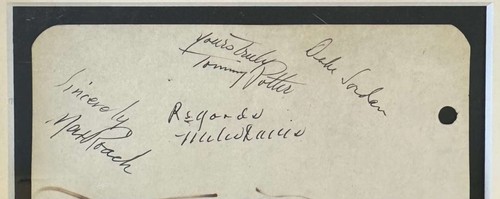 yours truly
Tommy Potter
Duke Jordan
Sincerely
Max Roach
Regards
Miles Davis